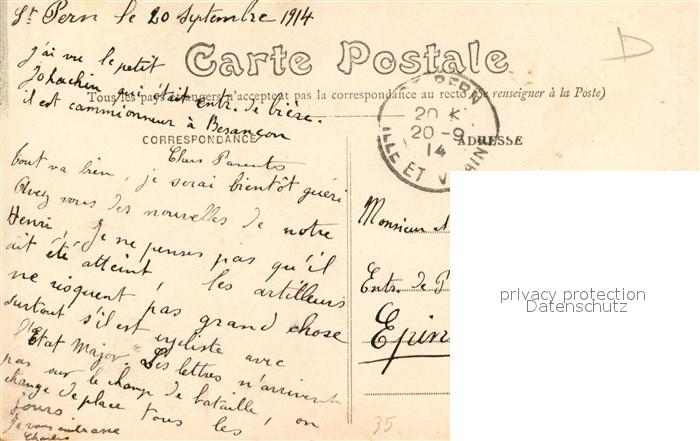 St Pern le 20 septembre 1914
j'ai vu le petit
Johachin qui était entr. de bière.
il est cammionneur à Besançon
Carte Postale
Tous les pays étrangers n'acceptent pas la correspondance au recto (se renseigner à la Poste)
CORRESPONDANCE
ADRESSE
PERN
20 K
20-9
14
ILLE ET VILAINE
Chers Parents
tout va bien, je serai bientôt guéri
Avez vous des nouvelles de notre
Henri, Je ne penses pas qu'il
ait été atteint, les artilleurs
ne risquent pas grand chose
surtout s'il est cycliste avec
l'Etat Major. Les lettres n'arrivent
pas sur le champ de bataille, on
change de place tous les
jours
Je vous embrasse
Charles
Monsieur
Entr. de
Epin
privacy protection
Datenschutz
35
D